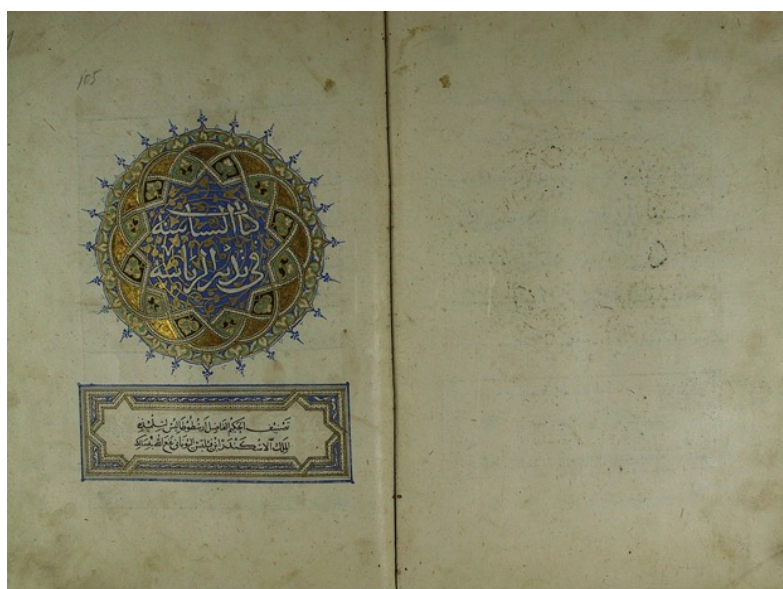 105
كتاب السياسة
في تدبير الرياسة
تصنيف الحكيم الفاضل ارسطوطاليس لتلميذه
الملك الاسكندر ابن فيلبس اليوناني